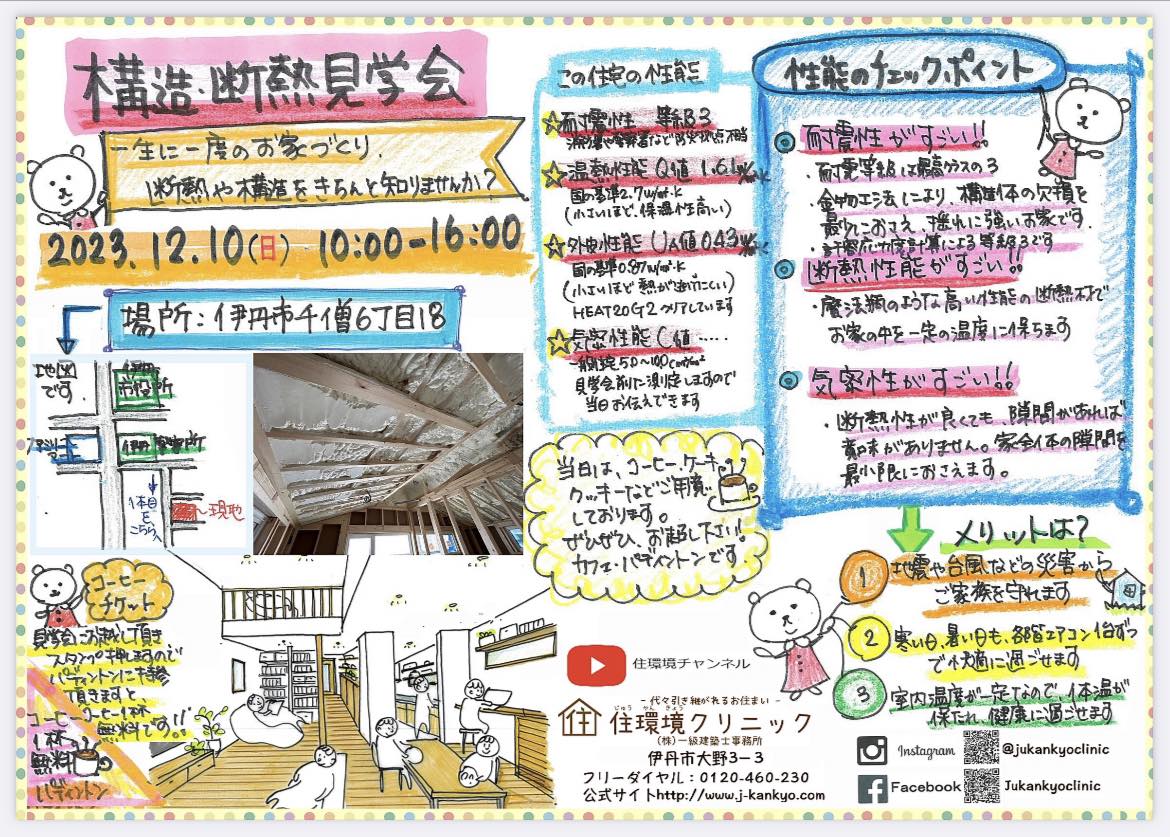 構造・断熱見学会
一生に一度のお家づくり、
断熱や構造をきちんと知りませんか?
2023.12.10(日) 10:00-16:00
場所:伊丹市千僧6丁目18
地図
です。
伊丹
市役所
伊丹警察所
1本目
を
こちらへ
現地
コーヒー
チケット
見学会にお越し頂き
スタンプ押しますので
パディントンに持参
頂きますと
コーヒー1杯
無料です!!
コーヒー
1杯
無料
パディントン
この住宅の性能
耐震性 等級3
消防署や警察署など防災拠点相当
温熱性能 Q値 1.61w/㎡・K
国の基準2.7w/㎡・K
(小さいほど、保温性高い)
外皮性能 UA値 0.43w/㎡・K
国の基準0.87w/㎡・K
(小さいほど熱が逃げにくい)
HEAT20G2クリアしています
気密性能 C値‥‥‥
一般住宅5.0~10.0c㎡/㎡
見学会前に測定しますので
当日お伝えできます
当日は、コーヒー、ケーキ、
クッキーなどご用意
しております。
ぜひぜひ、お越し下さい!
カフェ・パディントンです。
性能のチェックポイント
耐震性がすごい!!
・耐震等級は最高クラスの3
・金物工法により、構造体の欠損を
最少におさえ、揺れに強いお家です。
・許容応力度計算による等級3です
断熱性能がすごい!!
・魔法瓶のような高い性能の断熱材で
お家の中を一定の温度に保ちます
気密性がすごい!!
・断熱性が良くても、隙間があれば
意味がありません。家全体の隙間を
最小限におさえます。
メリットは?
1 地震や台風などの災害から
ご家族を守れます
2 寒い日、暑い日も、各階エアコン1台ずつ
で快適に過ごせます
3 室内温度が一定なので、体温が
保たれ、健康に過ごせます
住環境チャンネル
- 代々引き継がれるお住まい -
じゅう かん きょう
住環境クリニック
(株)一級建築士事務所
伊丹市大野3-3
フリーダイヤル:0120-460-230
公式サイトhttp://www.j-kankyo.com
Instagram @jukankyoclinic
Facebook Jukankyoclinic